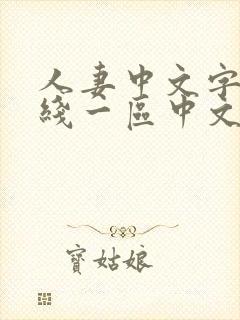 人妻中文字
綫一區中文
寶姑娘